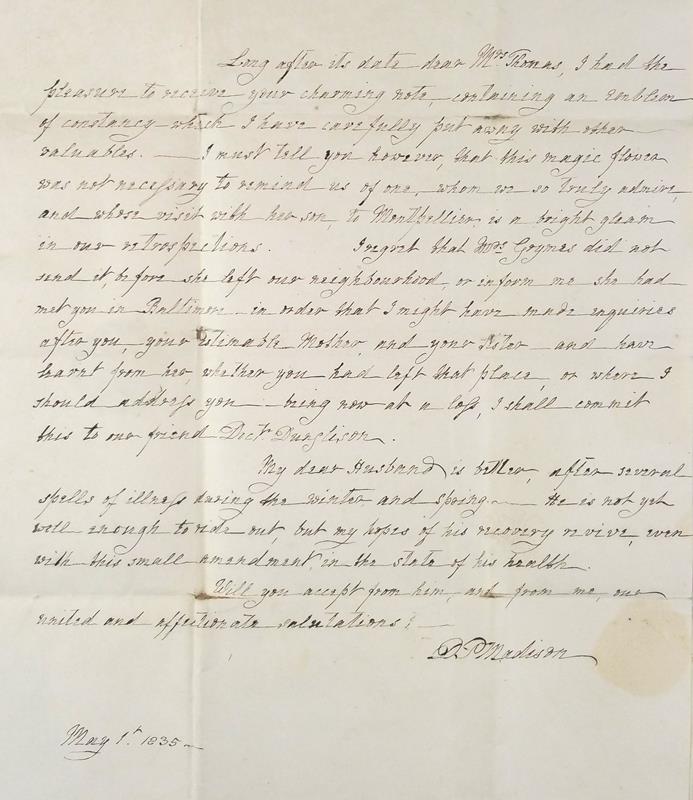 Long after its date dear Mrs Thomas, I had the
pleasure to receive your charming note, containing an Emblem
of constancy which I have carefully put away with other
valuables. — I must tell you however, that this magic flower
was not necessary to remind us of one, whom we so truly admire,
and whose visit with her son, to Montpellier, is a bright gleam
in our retrospections. I regret that Mrs Grymes did not
send it, before she left our neighbourhood, or inform me she had
met you in Baltimore in order that I might have made enquiries
after you, your estimable Mother, and your Sister and have
learnt from her, whether you had left that place, or where I
should address you — being now at a loss, I shall commit
this to our friend Doctr Dunglison.
My dear Husband is better, after several
spells of illness during the winter and spring. — He is not yet
well enough to ride out, but my hopes of his recovery revive, even
with this small amendment, in the state of his health.
Will you accept from him, and from me, our
united and affectionate salutations! —
D. P. Madison
May 1st. 1835 —